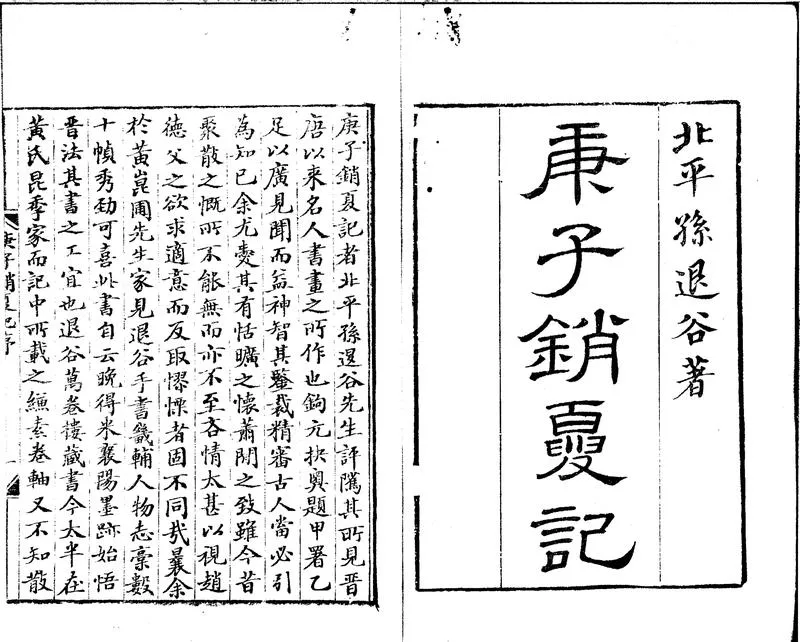 北平孫退谷著
庚子銷夏記
庚子銷夏記者北平孫退谷先生評隲其所見晉
唐以來名人書畫之所作也鉤元抉奧題甲署乙
足以廣見聞而益神智其鑒裁精審古人當必引
為知己余尤愛其有恬曠之懷蕭閒之致雖今昔
聚散之慨所不能無而亦不至吝情太甚以視趙
德父之欲求適意而反取憀慄者固不同哉曩余
於黃崑圃先生家見退谷手書畿輔人物志稾數
十幀秀勁可喜此書自云晚得米襄陽墨跡始悟
晉法其書之工宜也退谷萬卷樓藏書今太半在
黃氏昆季家而記中所載之縑素卷軸又不知散
庚子銷夏記序